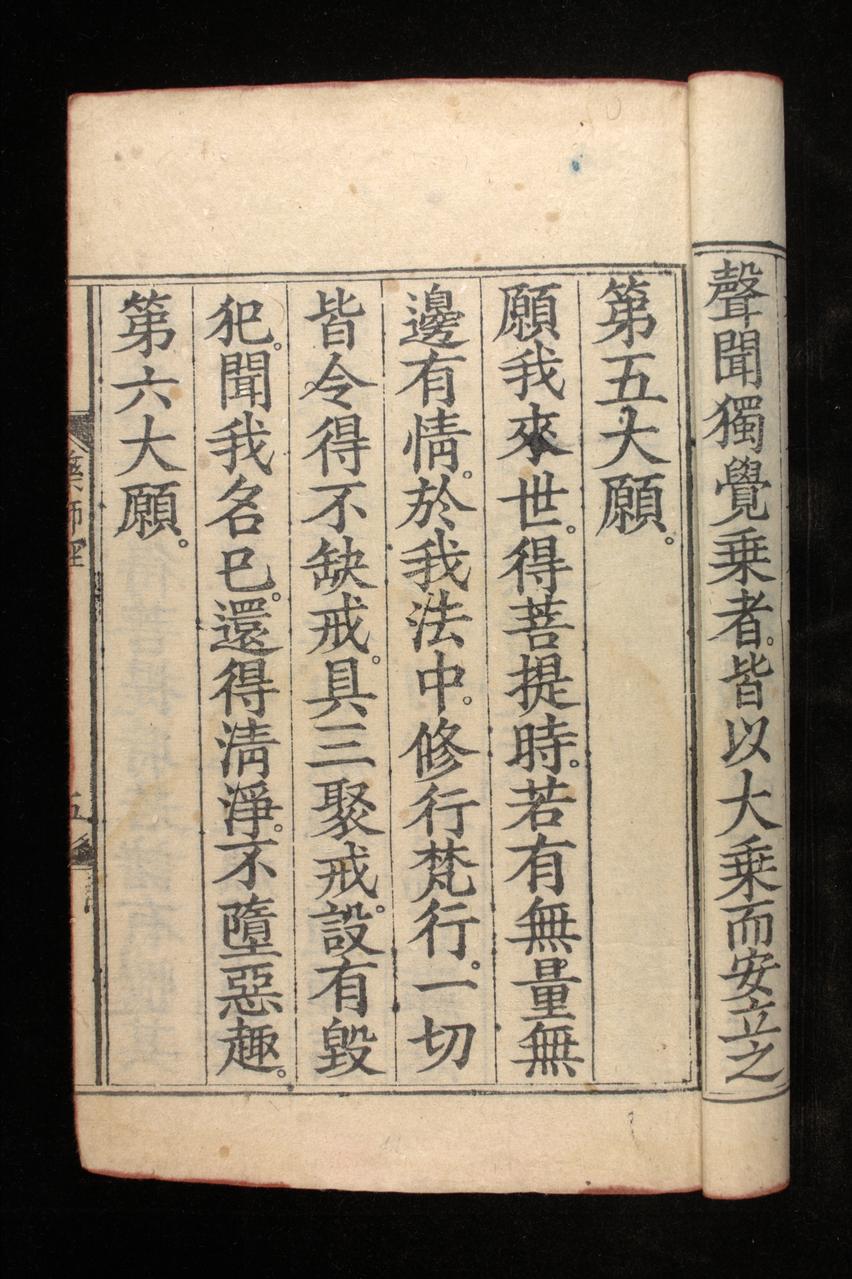 聲聞獨覺乘者。皆以大乘而安立之
第五大願。
願我來世。得菩提時。若有無量無
邊有情。於我法中。修行梵行。一切
皆令得不缺戒。具三聚戒。設有毀
犯。聞我名已。還得清淨。不墮惡趣。
第六大願。
藥師經
五